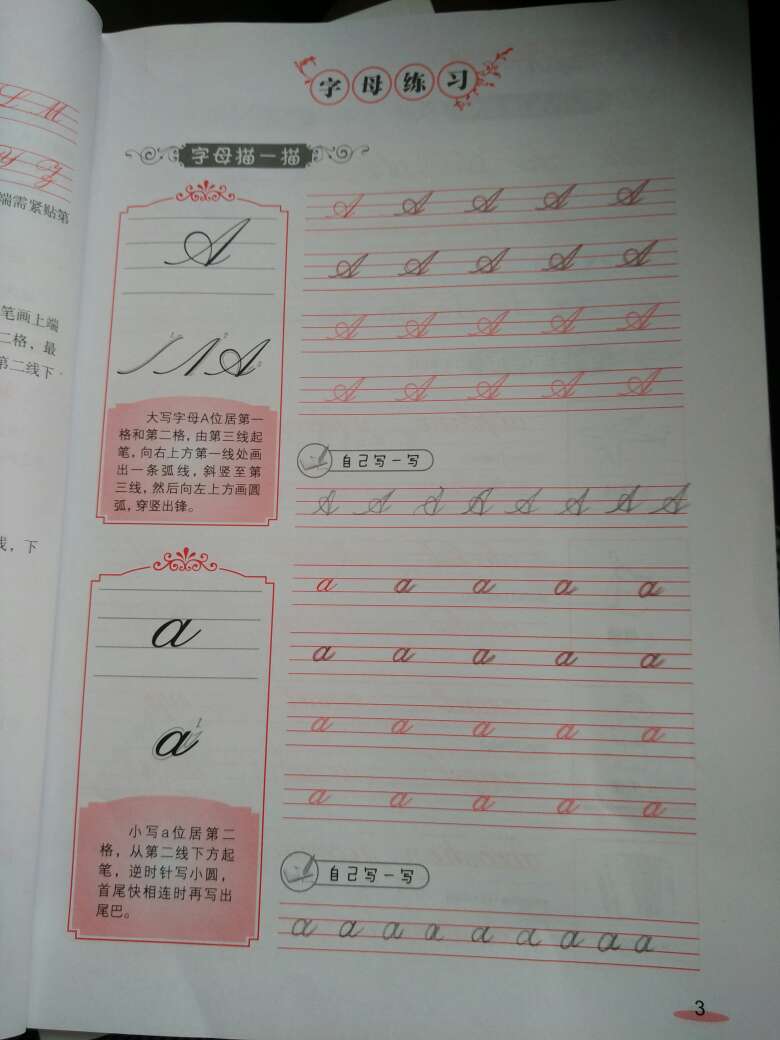 L M
Y Z
端需紧贴第
笔画上端
二格，最
第二线下
线，下
字母练习
字母描一描
A
1 2 3
A A A A A
A A A A A
A A A A A
A A A A A
大写字母A位居第一
格和第二格，由第三线起
笔，向右上方第一线处画
出一条弧线，斜竖至第
三线，然后向左上方画圆
弧，穿竖出锋。
自己写一写
A A A A A A A A A
a
a 1
a a a a a
a a a a a
a a a a a
a a a a a
小写a位居第二
格，从第二线下方起
笔，逆时针写小圆，
首尾快相连时再写出
尾巴。
自己写一写
a a a a a a a a a
3